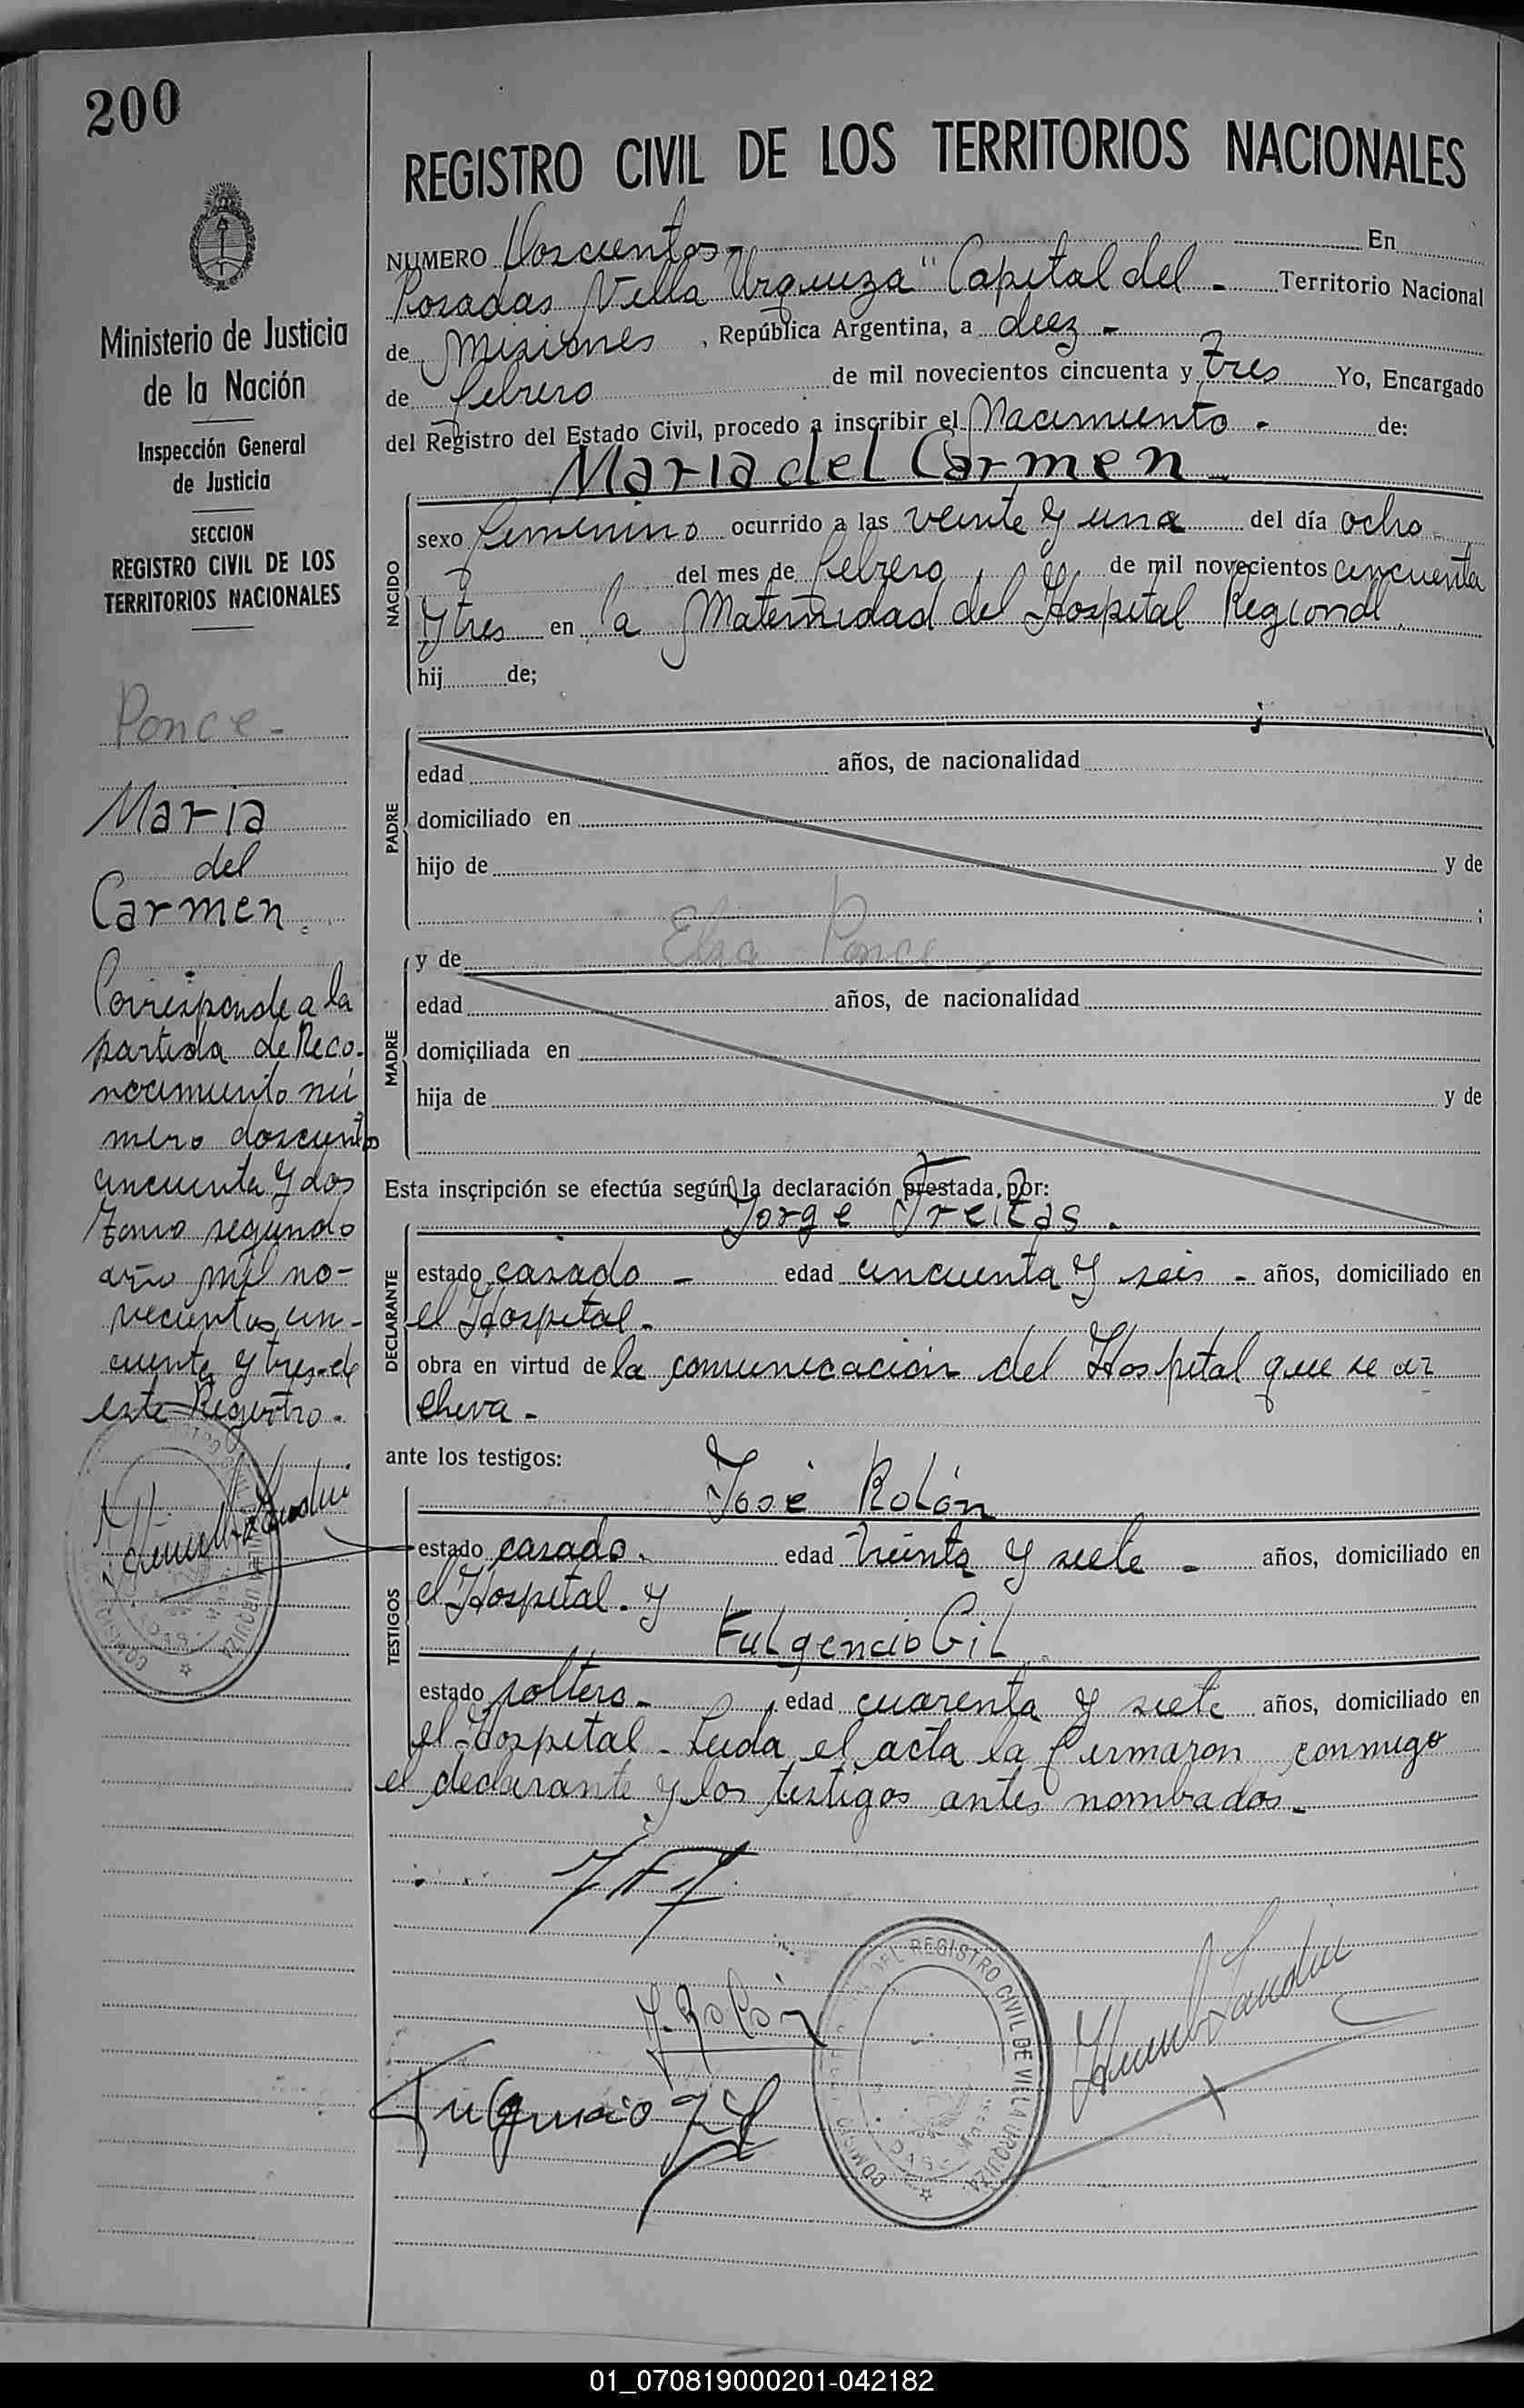 200
Ministerio de Justicia
de la Nación
Inspección General
de Justicia
SECCION
REGISTRO CIVIL DE LOS
TERRITORIOS NACIONALES
Ponce -
Maria
del
Carmen.
Corresponde a la
partida de Reco-
nocimiento nú
mero doscientos
cincuenta y dos
tomo segundo
año mil no-
vecientos cin-
cuenta y tres de
este Registro.
REGISTRO CIVIL DE LOS TERRITORIOS NACIONALES
NUMERO Doscientos - En
Posadas "Villa Urquiza" Capital del - Territorio Nacional
de Misiones, República Argentina, a diez -
de febrero de mil novecientos cincuenta y tres Yo, Encargado
del Registro del Estado Civil, procedo a inscribir el Nacimiento - de:
Maria del Carmen -
NACIDO
sexo femenino ocurrido a las veinte y una del día ocho -
del mes de febrero de mil novecientos cincuenta
y tres en la Maternidad del Hospital Regional.
hij de;
PADRE
edad años, de nacionalidad
domiciliado en
hijo de y de
;
MADRE
y de Elsa Ponce
edad años, de nacionalidad
domiciliada en
hija de y de
Esta inscripción se efectúa según la declaración prestada, por:
Jorge Freitas.
DECLARANTE
estado casado - edad cincuenta y seis - años, domiciliado en
el Hospital -
obra en virtud de la comunicación del Hospital que se ar
chiva -
ante los testigos:
José Rolón
TESTIGOS
estado casado. edad treinta y siete - años, domiciliado en
el Hospital. y
Fulgencio Gil
estado soltero - edad cuarenta y siete años, domiciliado en
el Hospital - Leída el acta la firmaron conmigo
el declarante y los testigos antes nombados -
J. Rolón
Fulgencio Gil
DEL REGISTRO CIVIL DE VILLA URQUIZA
01_070819000201-042182